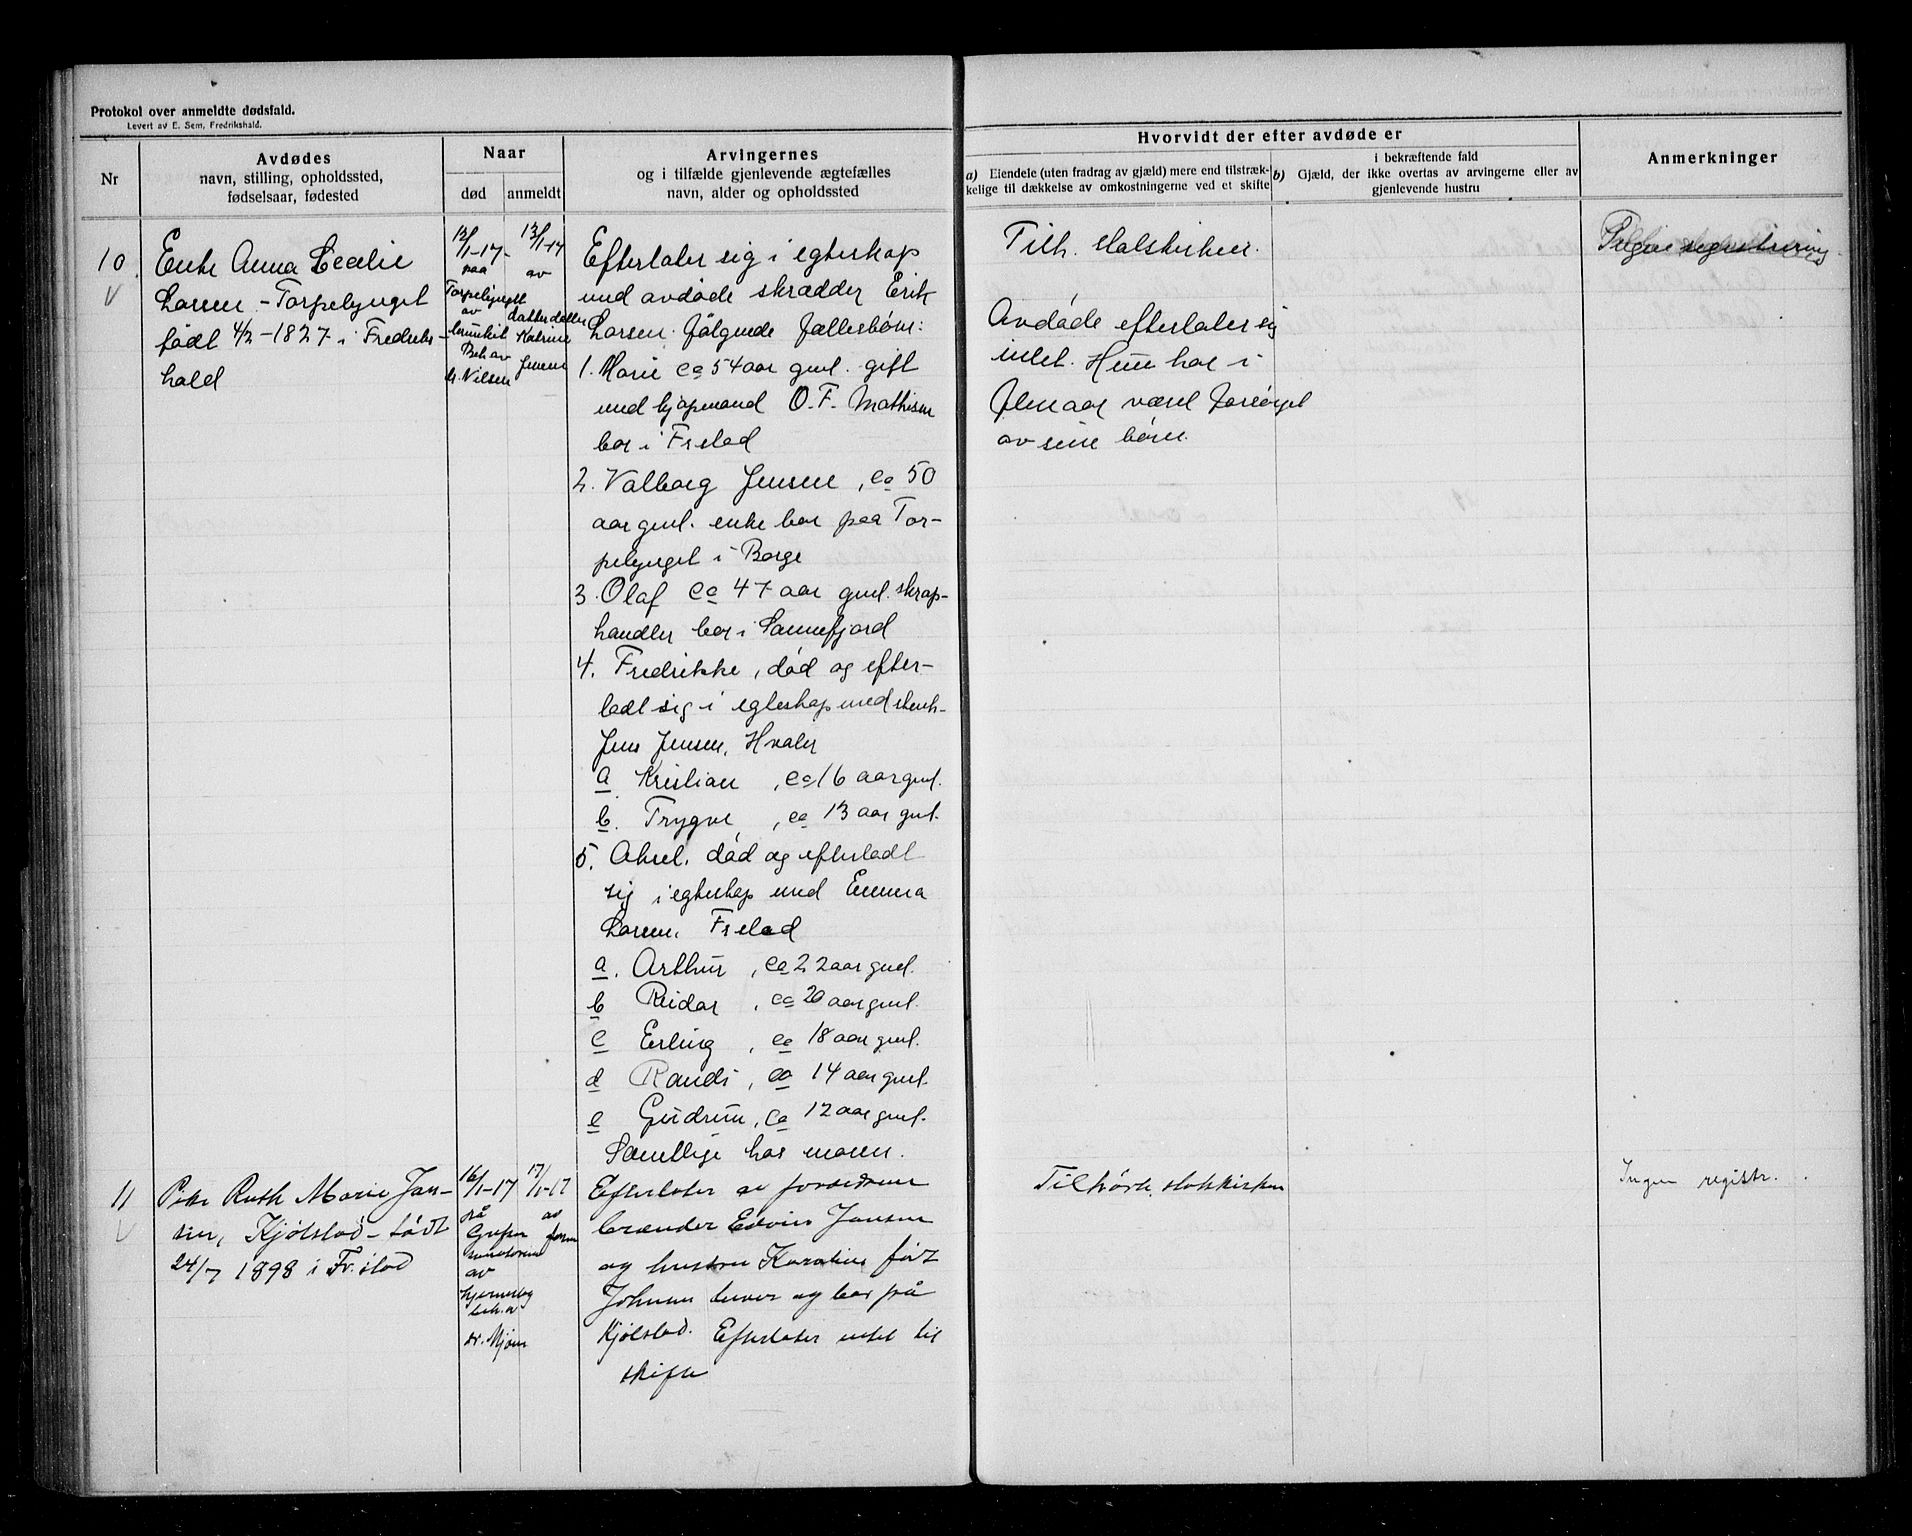 Protokol over anmeldte dødsfald.
Levert av E. Sem, Fredrikshald.
Nr
Avdødes
navn, stilling, opholdssted,
fødselsaar, fødested
Naar
død
anmeldt
Arvingernes
og i tilfælde gjenlevende ægtefælles
navn, alder og opholdssted
Hvorvidt der efter avdøde er
a) Eiendele (uten fradrag av gjæld) mere end tilstræk-
kelige til dækkelse av omkostningerne ved et skifte
i bekræftende fald
b) Gjæld, der ikke overtas av arvingerne eller av
gjenlevende hustru
Anmerkninger
10
Enke Anna Cecilie
Larsen - Torpelynget
født 4/2 - 1827 i Fredriks-
hald
13/1-17
paa
Torpelynget
av
Beh. av
Nilsen
13/1-17
av
datterdatter
Katrine
Jensen
Efterlater sig i egteskap
med avdøde skrædder Erik
Larsen følgende fællesbørn:
1. Marie ca 54 aar gml. gift
med kjøpmand O. F. Mathisen
bor i Frstad
2. Valborg Jensen, ca 50
aar gml. enke bor paa Tor-
pelynget i Borge
3. Olaf ca 47 aar gml. skrap-
handler bor i Sannefjord
4. Fredrikke, død og efter-
latt sig i egteskap med
Jens Jensen, Hvaler
a Kristian, ca 16 aar gml.
b. Trygve, ca 13 aar gml.
5. Aksel. død og efterladt
sig i egteskap med Emma
Larsen. Frstad
a. Arthur, ca 22 aar gml.
b Reidar, ca 20 aar gml.
c Erling, ca 18 aar gml.
d Randi, ca 14 aar gml.
e Gudrun, ca 12 aar gml.
Samtlige hos moren.
Tilh. statskirken.
Avdøde efterlater sig
intet. Hun har i
flere aar været forsørget
av sine børn.
Ingen registrering
11
Pike Ruth Marie Jan-
sen, Kjølstad - født
24/7 1898 i Fr.stad
16/1-17
på
av
beh. av
dr. Mjøen
17/1-17
av
faren
Efterlater sig forældrene
brænder Edvin Jansen
og hustru Karoline født
Johnsen lever og bor på
Kjølstad. Efterlater intet til
skifte
Tilhørte statskirken
Ingen registr.